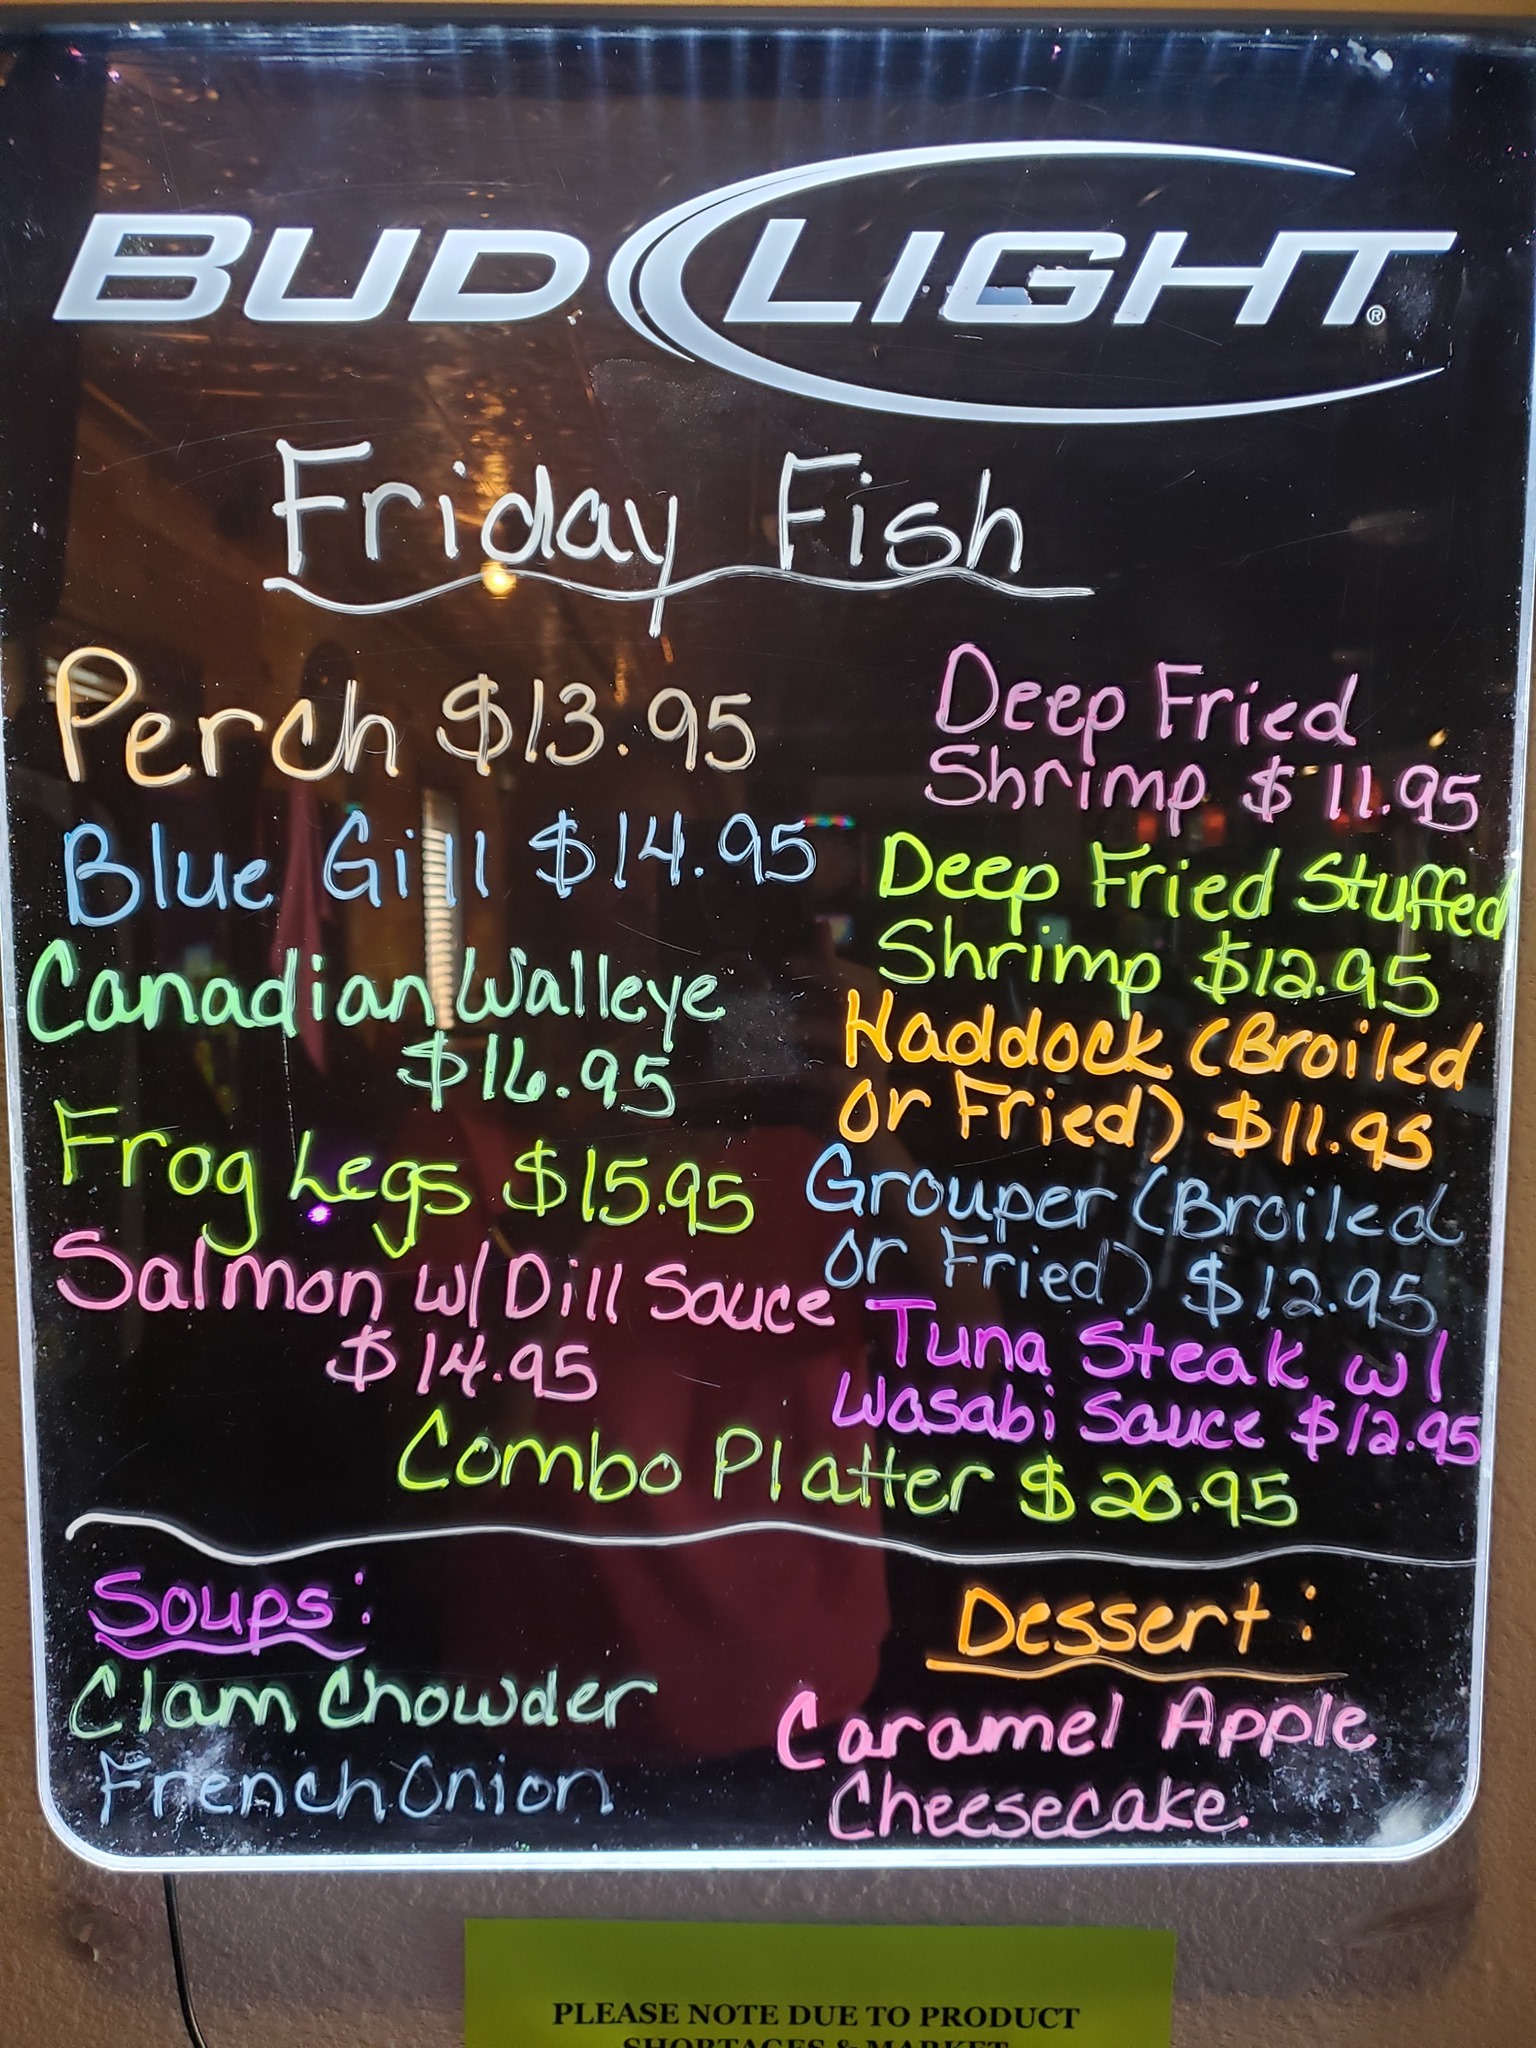 BUD LIGHT®
Friday Fish
Perch $13.95
Blue Gill $14.95
Canadian Walleye
$16.95
Frog Legs $15.95
Salmon w/ Dill Sauce
$14.95
Deep Fried
Shrimp $11.95
Deep Fried Stuffed
Shrimp $12.95
Haddock (Broiled
or Fried) $11.95
Grouper (Broiled
or Fried) $12.95
Tuna Steak w/
Wasabi Sauce $12.95
Combo Platter $20.95
Soups:
Clam Chowder
French Onion
Dessert:
Caramel Apple
Cheesecake.
PLEASE NOTE DUE TO PRODUCT
SHORTAGES & MARKET